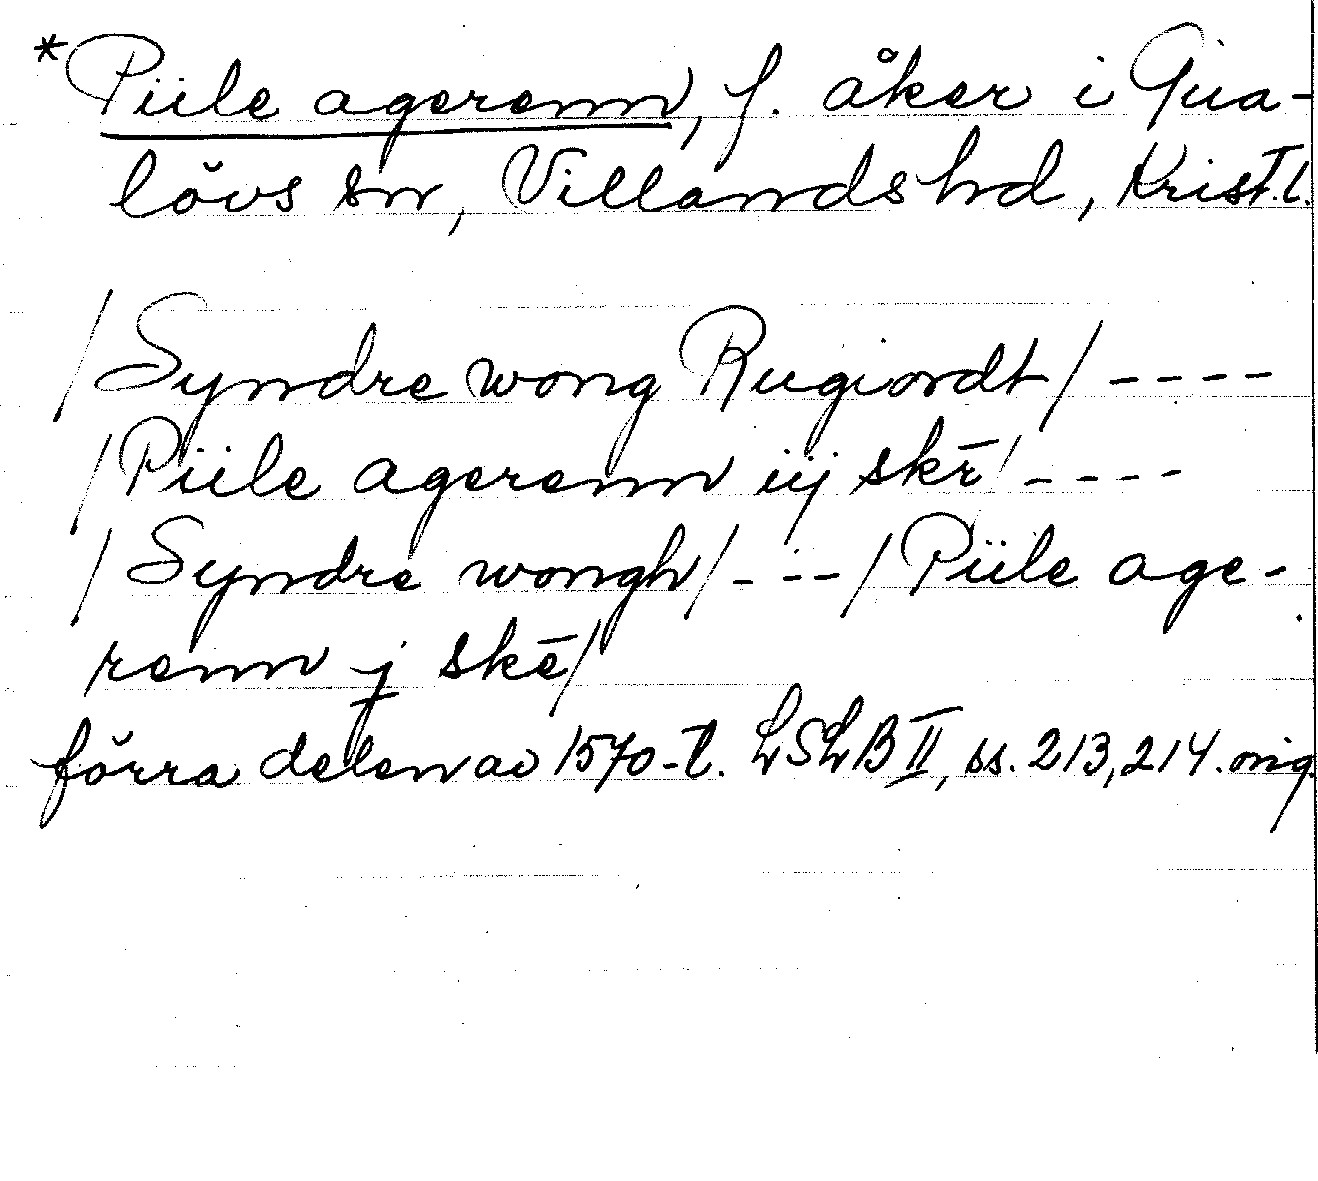 *Piile agerenn, f. åker i Gua-
lövs sn, Villands hd, Krist.l.
/Syndre wong Rugiordt/ ----
/Piile agerenn iij skr̄/ ----
/Syndre wongh/ ---- /Piile age-
renn j skē/
förra delen av 1570-t. LSLB II, ss. 213, 214. orig.